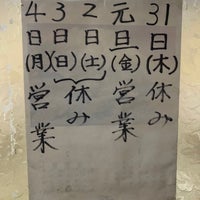 31日(木)休み
元旦(金)営業
2日(土)
3日(日)休み
4日(月)営業